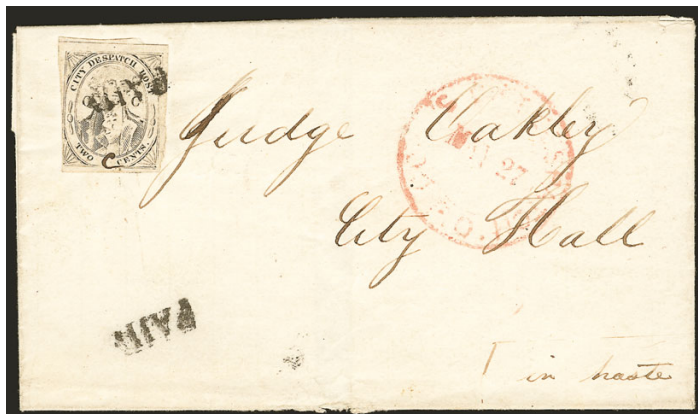 CITY DESPATCH POST
TWO CENTS.
C
Judge Oakley
27
City Hall
PAID
in haste